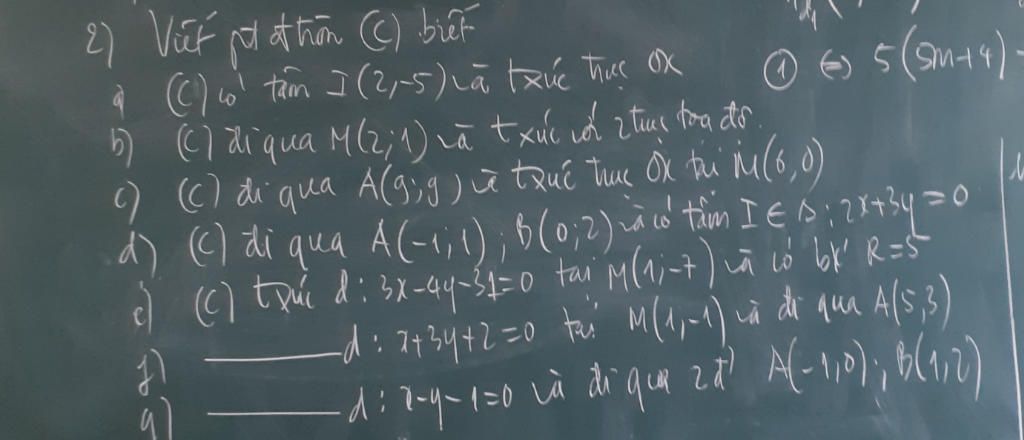 2) Viết pt đ tròn (C) biết
a) (C) có tâm I(2,-5) và txúc trục Ox
① ⇔ 5(5m+4)
b) (C) đi qua M(2;1) và txúc với 2 trục tọa độ.
c) (C) đi qua A(9;9) và txúc trục Ox tại M(6,0)
d) (C) đi qua A(-1;1); B(0;2) và có tâm I ∈ Δ: 2x+3y=0
e) (C) txúc d: 3x-4y-31=0 tại M(1;-7) và có bk' R=5
f) ———— d: x+3y+2=0 tại M(1,-1) và đi qua A(5,3)
g) ———— d: x-y-1=0 và đi qua 2đ' A(-1,0); B(1,2)